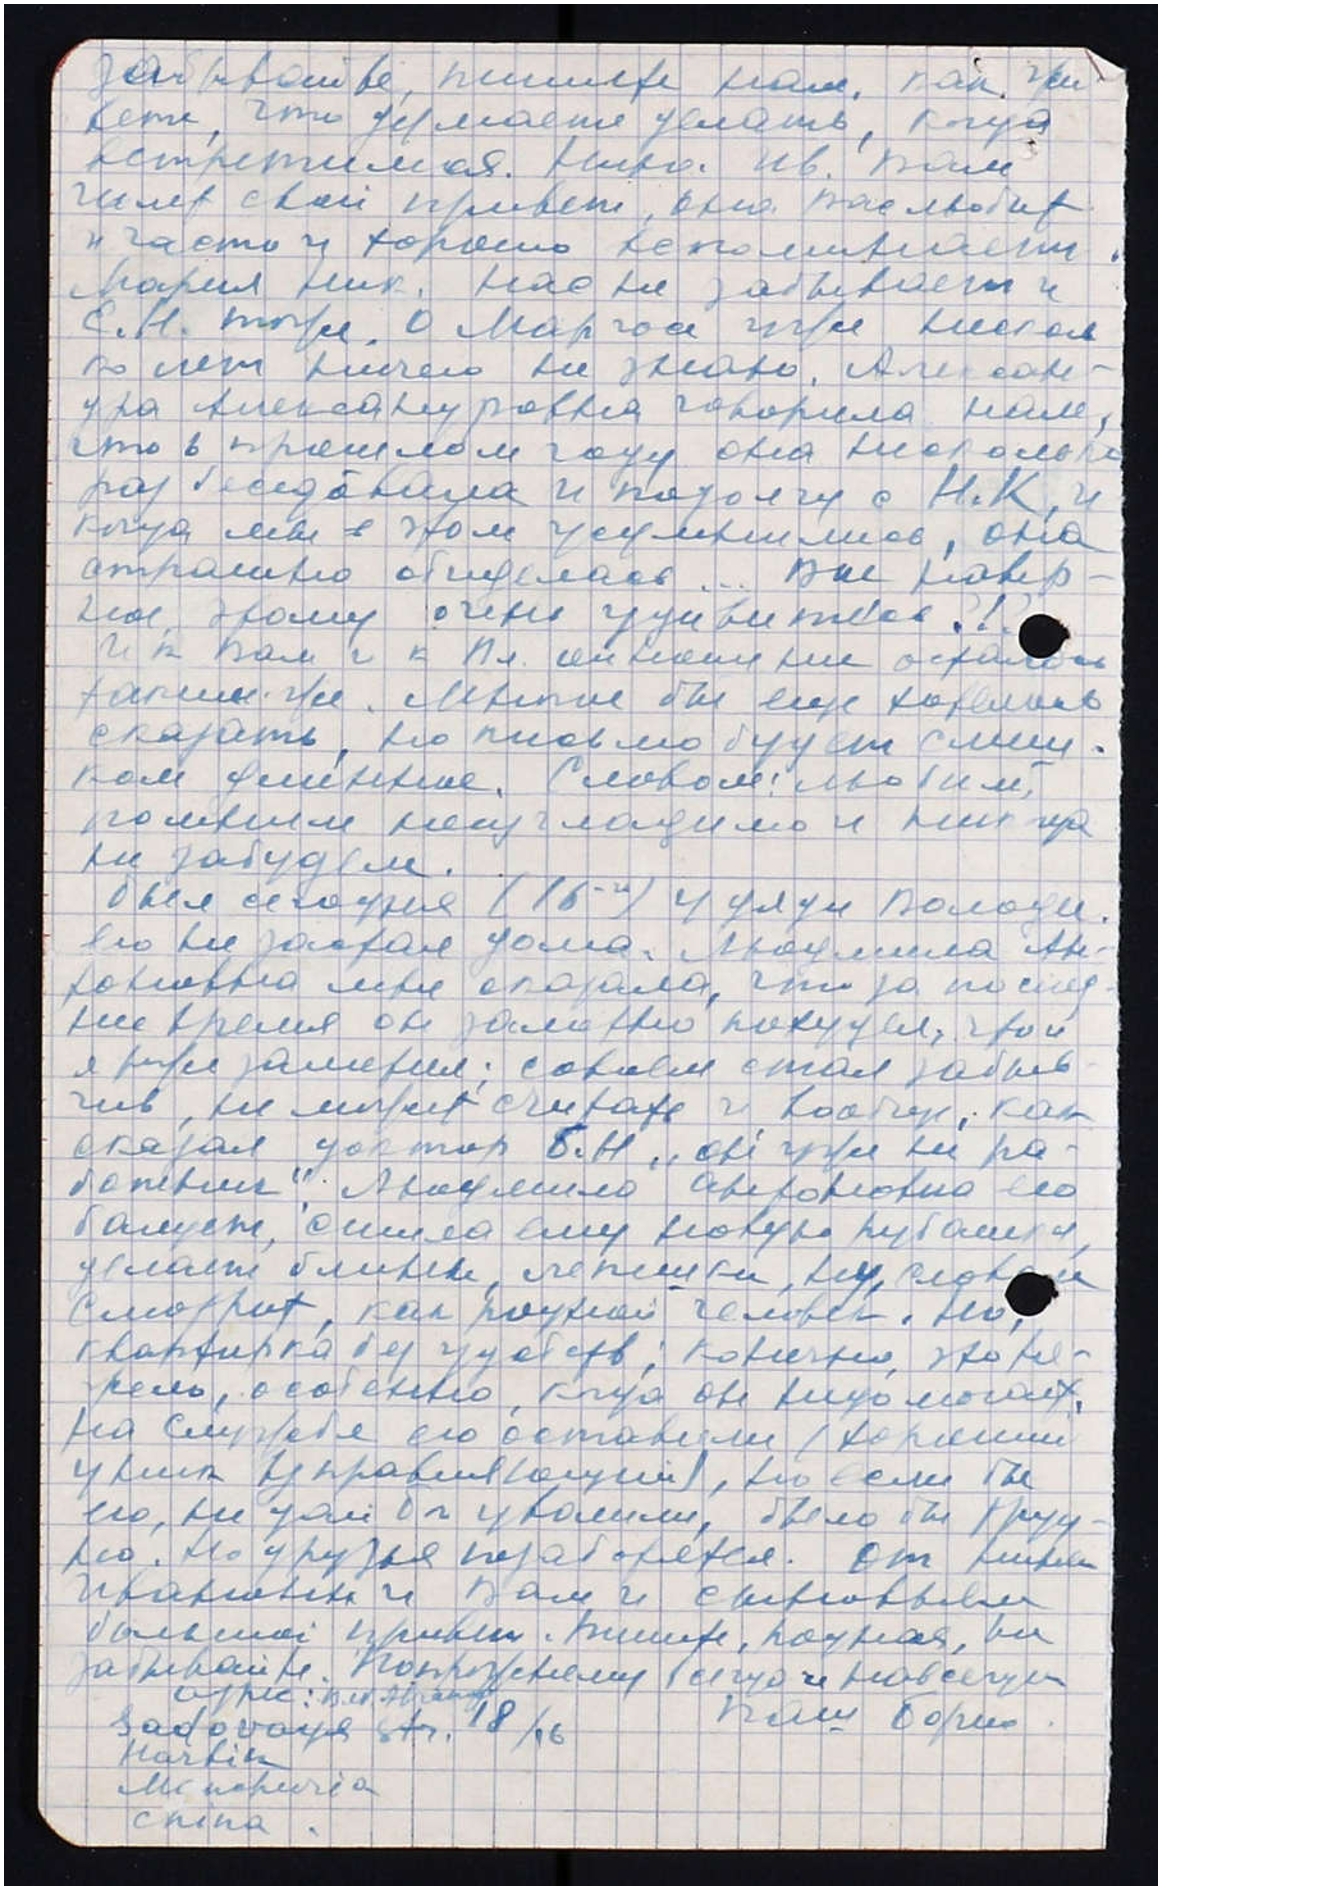 забывайте, пишите нам, как жи-
вете, что думаете делать, когда
встретимся. Нина Ив. Вам
шлет свой привет, она Вас любит
и часто и хорошо вспоминает.
Мария Ник. Нас не забывает и
Е.Н. тоже. О Марго уже несколь
ко лет ничего не знаю. Алексан-
дра Александровна говорила нам,
что в прошлом году она несколько
раз беседовала и подолгу с Н.К, и
когда мы в этом усумнились, она
страшно обиделась... Вы навер-
ное, этому очень удивитесь?!?
И к Вам и к Вл. отношение осталось
таким же. Многое бы еще хотелось
сказать, но письмо будет слиш-
ком длинное. Словом: любим,
помним неизгладимо и никогда
не забудем.
Был сегодня (16-го) у дяди Володи.
его не застал дома. Людмила Ан-
тоновна мне сказала, что за послед-
нее время он заметно похудел, что и
я тоже заметил; совсем стал забыв-
чив, не может считать и вообще, как
сказал доктор Б.Н „он уже не ра-
ботник". Людмила Антоновна его
балует, сшила ему новую рубашку,
делает блины, лепешки, ну, словом
смотрит, как родной человек. Но,
квартирка без удобств; конечно, это не-
, особенно, когда он недомогает.
На службе его оставили (хороший
у них управляющий), но если бы
его, не дай Бог уволили, было бы труд-
но. Но друзья позаботятся. От Нины
Ивановны и Вам и сыновьям
большой привет. Пишите, родная, не
забывайте. Попрежнему всегда и навсегда
Ваш Борис.
адрес:
Sadovaya Str. 18/16
Harbin
Manchuria
China.